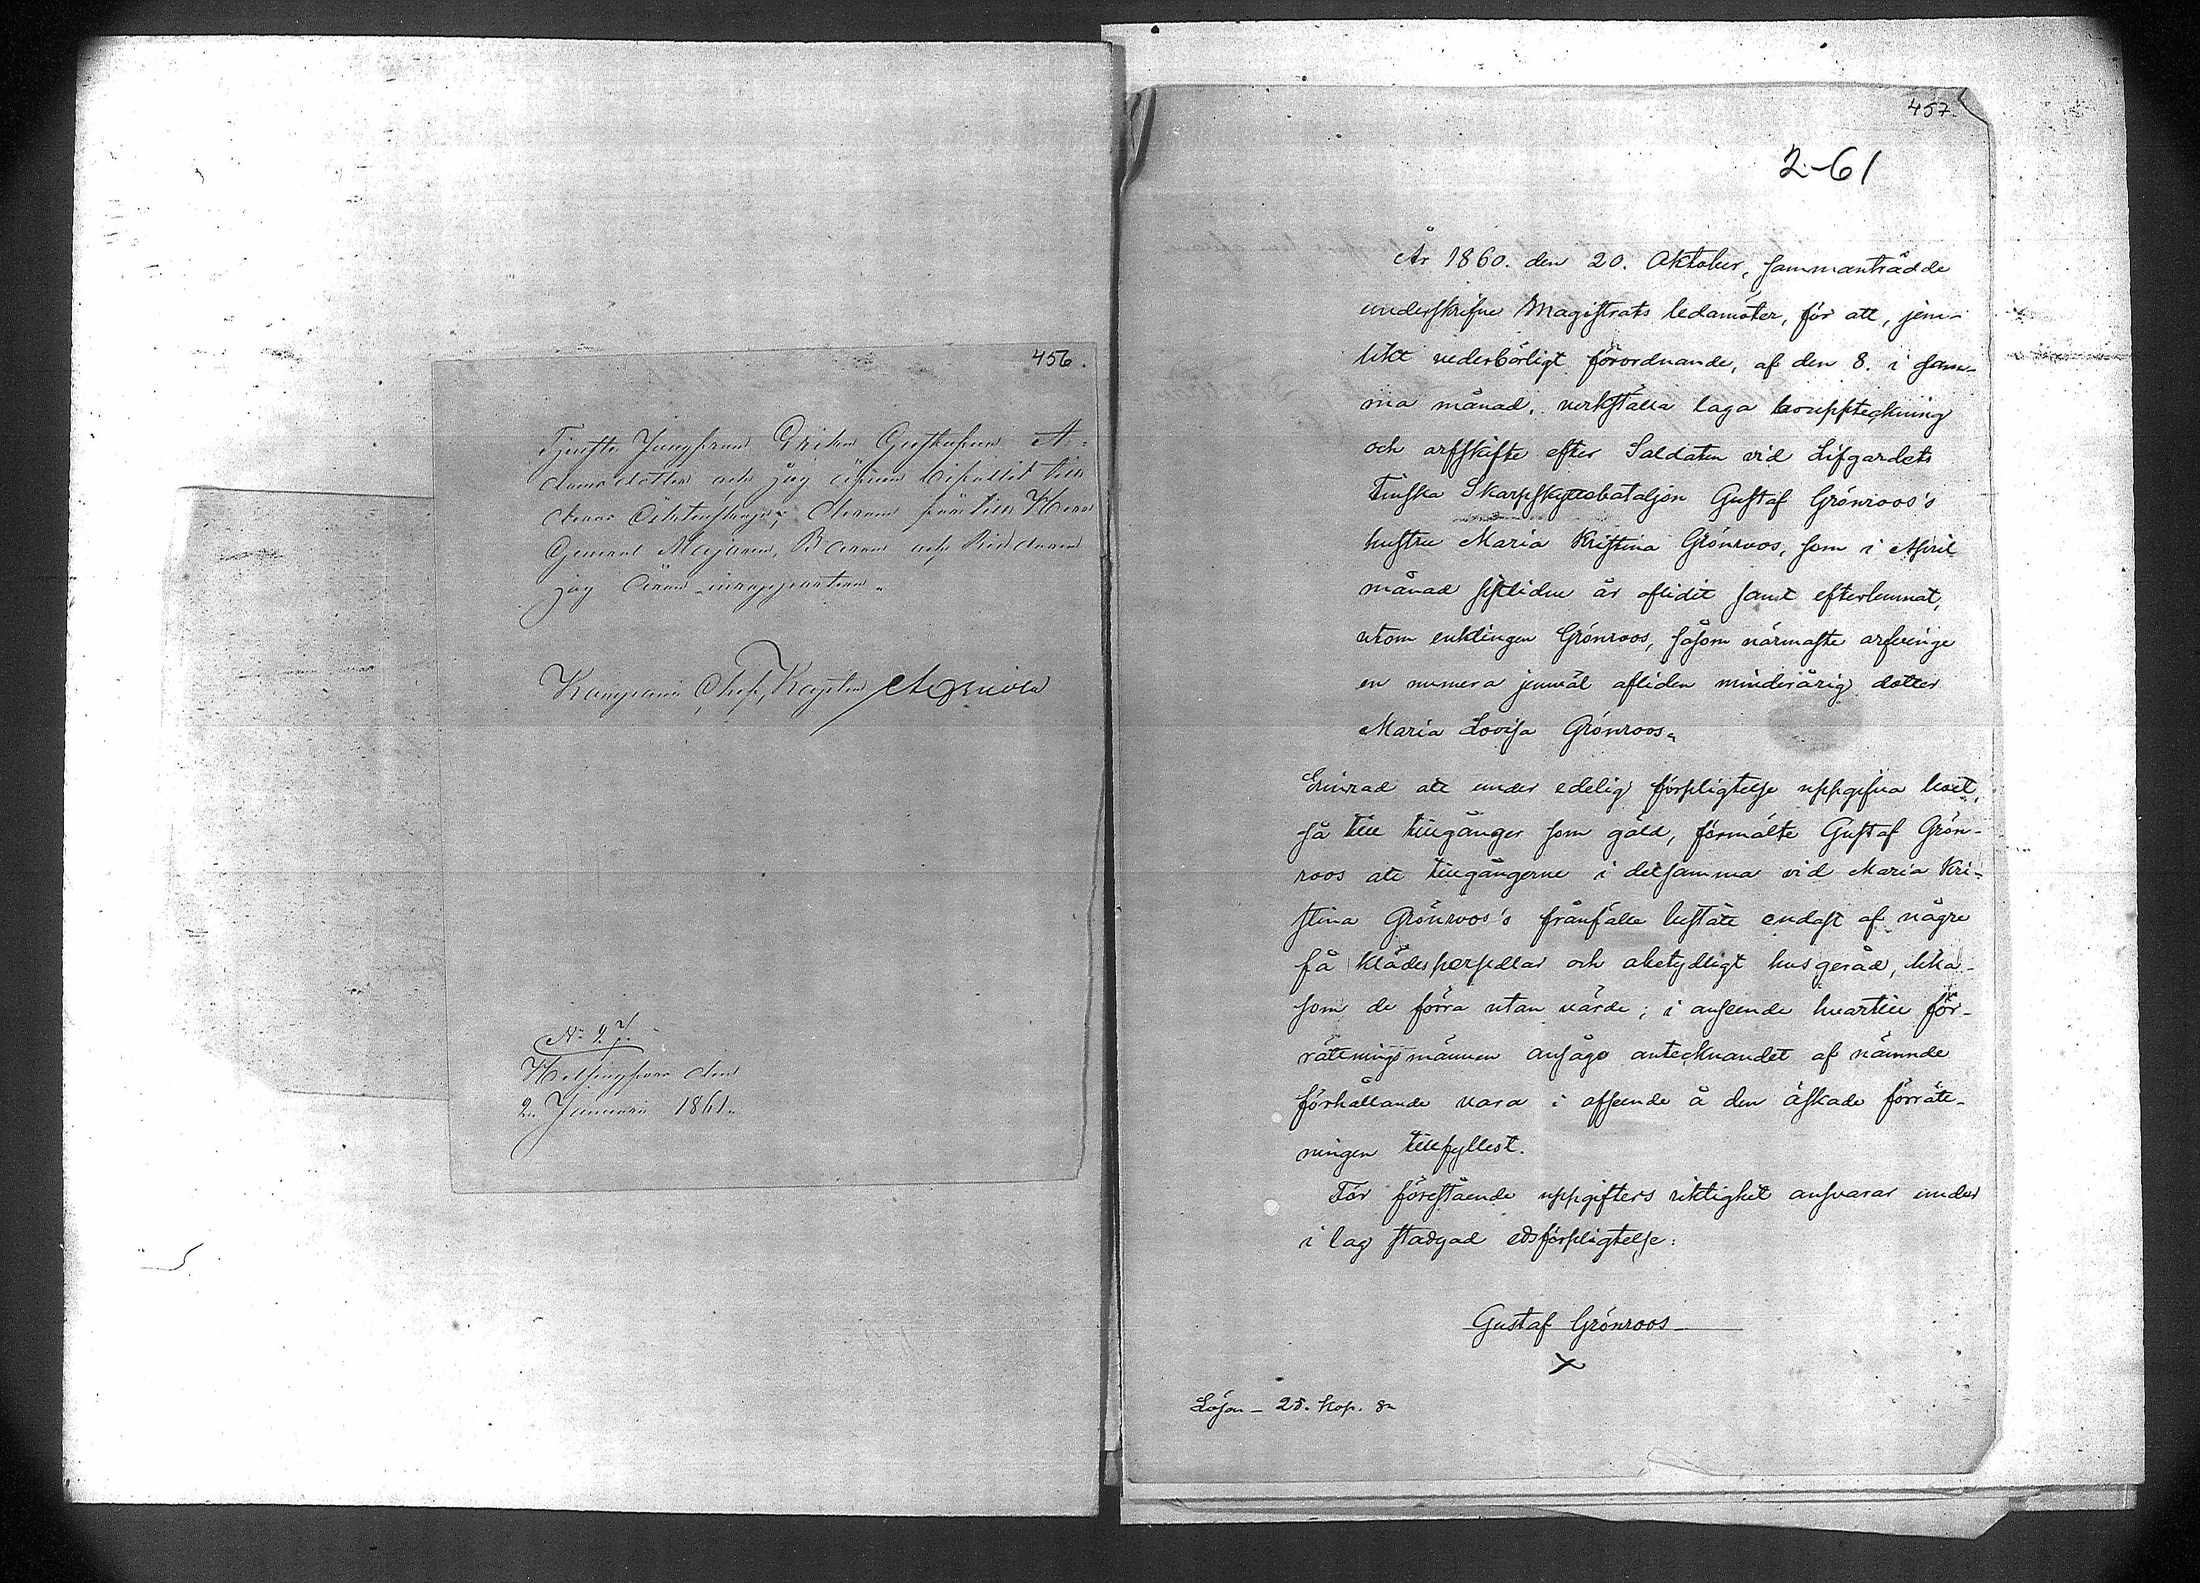 456.
Tjenste Jungfrun Gustafsson A-
dams dotter och jag
deras till Herr
General Majoren, B och Riddaren
jag
Kompanie Chef, Kapten
No 27.
Helsingfors den
2. Januari 1861.
457.
2-61
År 1860. den 20. Oktober, sammanträdde
underskrifne Magistrats ledamöter, för att, jem-
likt vederbörligt förordnande, af den 8. i sam-
ma månad, verkställa laga bouppteckning
och arfskifte efter Soldaten vid Lifgardets
Finska Skarpskyttebataljon Gustaf Grönroos's
hustru Maria Kristina Grönroos, som i April
månad sistliden år aflidit samt efterlemnat,
utom enklingen Grönroos, såsom närmaste arfvinge
en numera jemväl afliden minderårig dotter
Maria Lovisa Grönroos.
Erinrad att under edelig förpligtelse uppgifva boet,
så till tillgånger som gäld, förmälte Gustaf Grön-
roos att tillgångerne i detsamma vid Maria Kri-
stina Grönroos's frånfälle bestått endast af några
få klädespersedlar och obetydligt husgeråd, lika-
som de förra utan värde; i anseende hvartill för-
rättningsmännen ansågo antecknandet af nämnde
förhållande vara i afseende å den äskade förrätt-
ningen tillfyllest.
För förestående uppgifters riktighet ansvarar under
i lag stadgad edsförpligtelse:
Gustaf Grönroos
X
Lösen - 28. kop. Sr